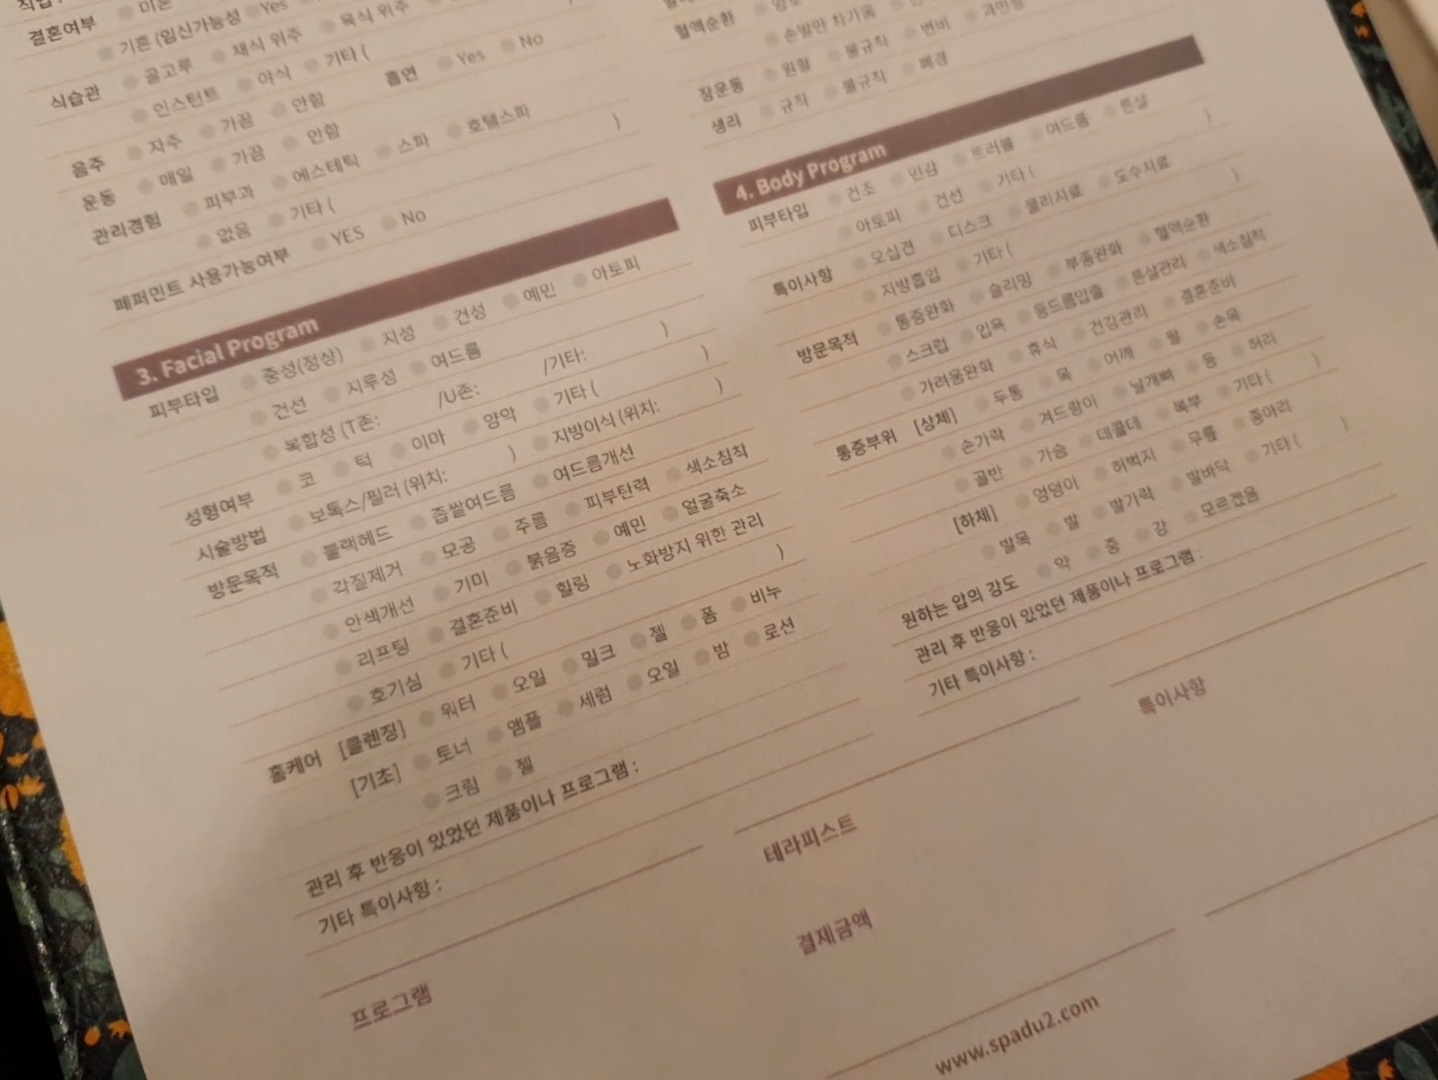 직업 :
결혼여부 미혼
기혼 (임신가능성 Yes
식습관 골고루 채식 위주 육식 위주
인스턴트 야식 기타 (
음주 자주 가끔 안함 흡연 Yes No
운동 매일 가끔 안함
관리경험 피부과 에스테틱 스파 호텔스파
없음 기타 ( )
페퍼민트 사용가능여부 YES No
3. Facial Program
피부타입 중성(정상) 지성 건성 예민 아토피
건선 지루성 여드름
복합성 (T존: /U존: /기타: )
성형여부 코 턱 이마 양악 기타 ( )
시술방법 보톡스/필러 (위치: ) 지방이식 (위치: )
방문목적 블랙헤드 좁쌀여드름 여드름개선
각질제거 모공 주름 피부탄력 색소침착
안색개선 기미 붉음증 예민 얼굴축소
리프팅 결혼준비 힐링 노화방지 위한 관리
호기심 기타 ( )
홈케어 [클렌징] 워터 오일 밀크 젤 폼 비누
[기초] 토너 앰플 세럼 오일 밤 로션
크림 젤
관리 후 반응이 있었던 제품이나 프로그램 :
기타 특이사항 :
혈액순환
손발만 차가움
장운동 원활 불규칙 변비 과민성
생리 규칙 불규칙 폐경
4. Body Program
피부타입 건조 민감 트러블 여드름 튼살
아토피 건선 기타 ( )
특이사항 오십견 디스크 물리치료 도수치료
지방흡입 기타 ( )
방문목적 통증완화 슬리밍 부종완화 혈액순환
스크럽 입욕 등드름압출 튼살관리 색소침착
가려움완화 휴식 건강관리 결혼준비
통증부위 [상체] 두통 목 어깨 팔 손목
손가락 겨드랑이 날개뼈 등 허리
골반 가슴 데콜테 복부 기타 ( )
[하체] 엉덩이 허벅지 무릎 종아리
발목 발 발가락 발바닥 기타 ( )
원하는 압의 강도 약 중 강 모르겠음
관리 후 반응이 있었던 제품이나 프로그램 :
기타 특이사항 :
프로그램
테라피스트
특이사항
결제금액
www.spadu2.com